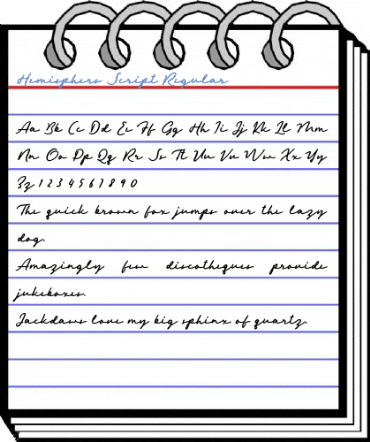 Hemisphers Script Regular
Aa Bb Cc Dd Ee Ff Gg Hh Ii Jj Kk Ll Mm
Nn Oo Pp Qq Rr Ss Tt Uu Vv Ww Xx Yy
Zz 1 2 3 4 5 6 7 8 9 0
The quick brown fox jumps over the lazy
dog.
Amazingly few discotheques provide
jukeboxes.
Jackdaws love my big sphinx of quartz.